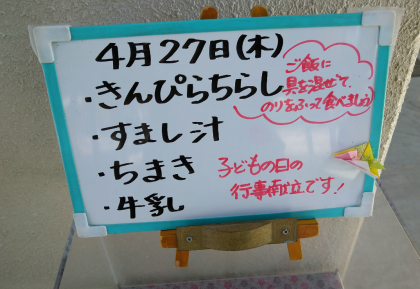 4月27日(木)
・きんぴらちらし
ご飯に
具を混ぜて、
のりをふって食べましょう
・すまし汁
・ちまき
子どもの日の
行事献立です!
・牛乳